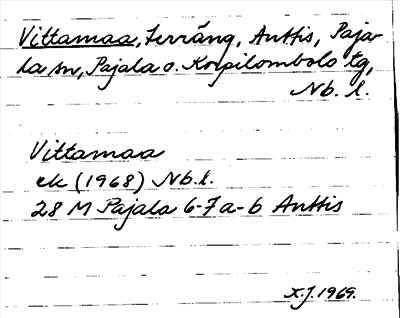 Vittamaa, terräng, Anttis, Paja-
la sn, Pajala o. Korpilombolo tg,
Nb. l.
Vittamaa
ek (1968) Nb.l.
28 M Pajala 6-7 a-b Anttis
X.J. 1969.